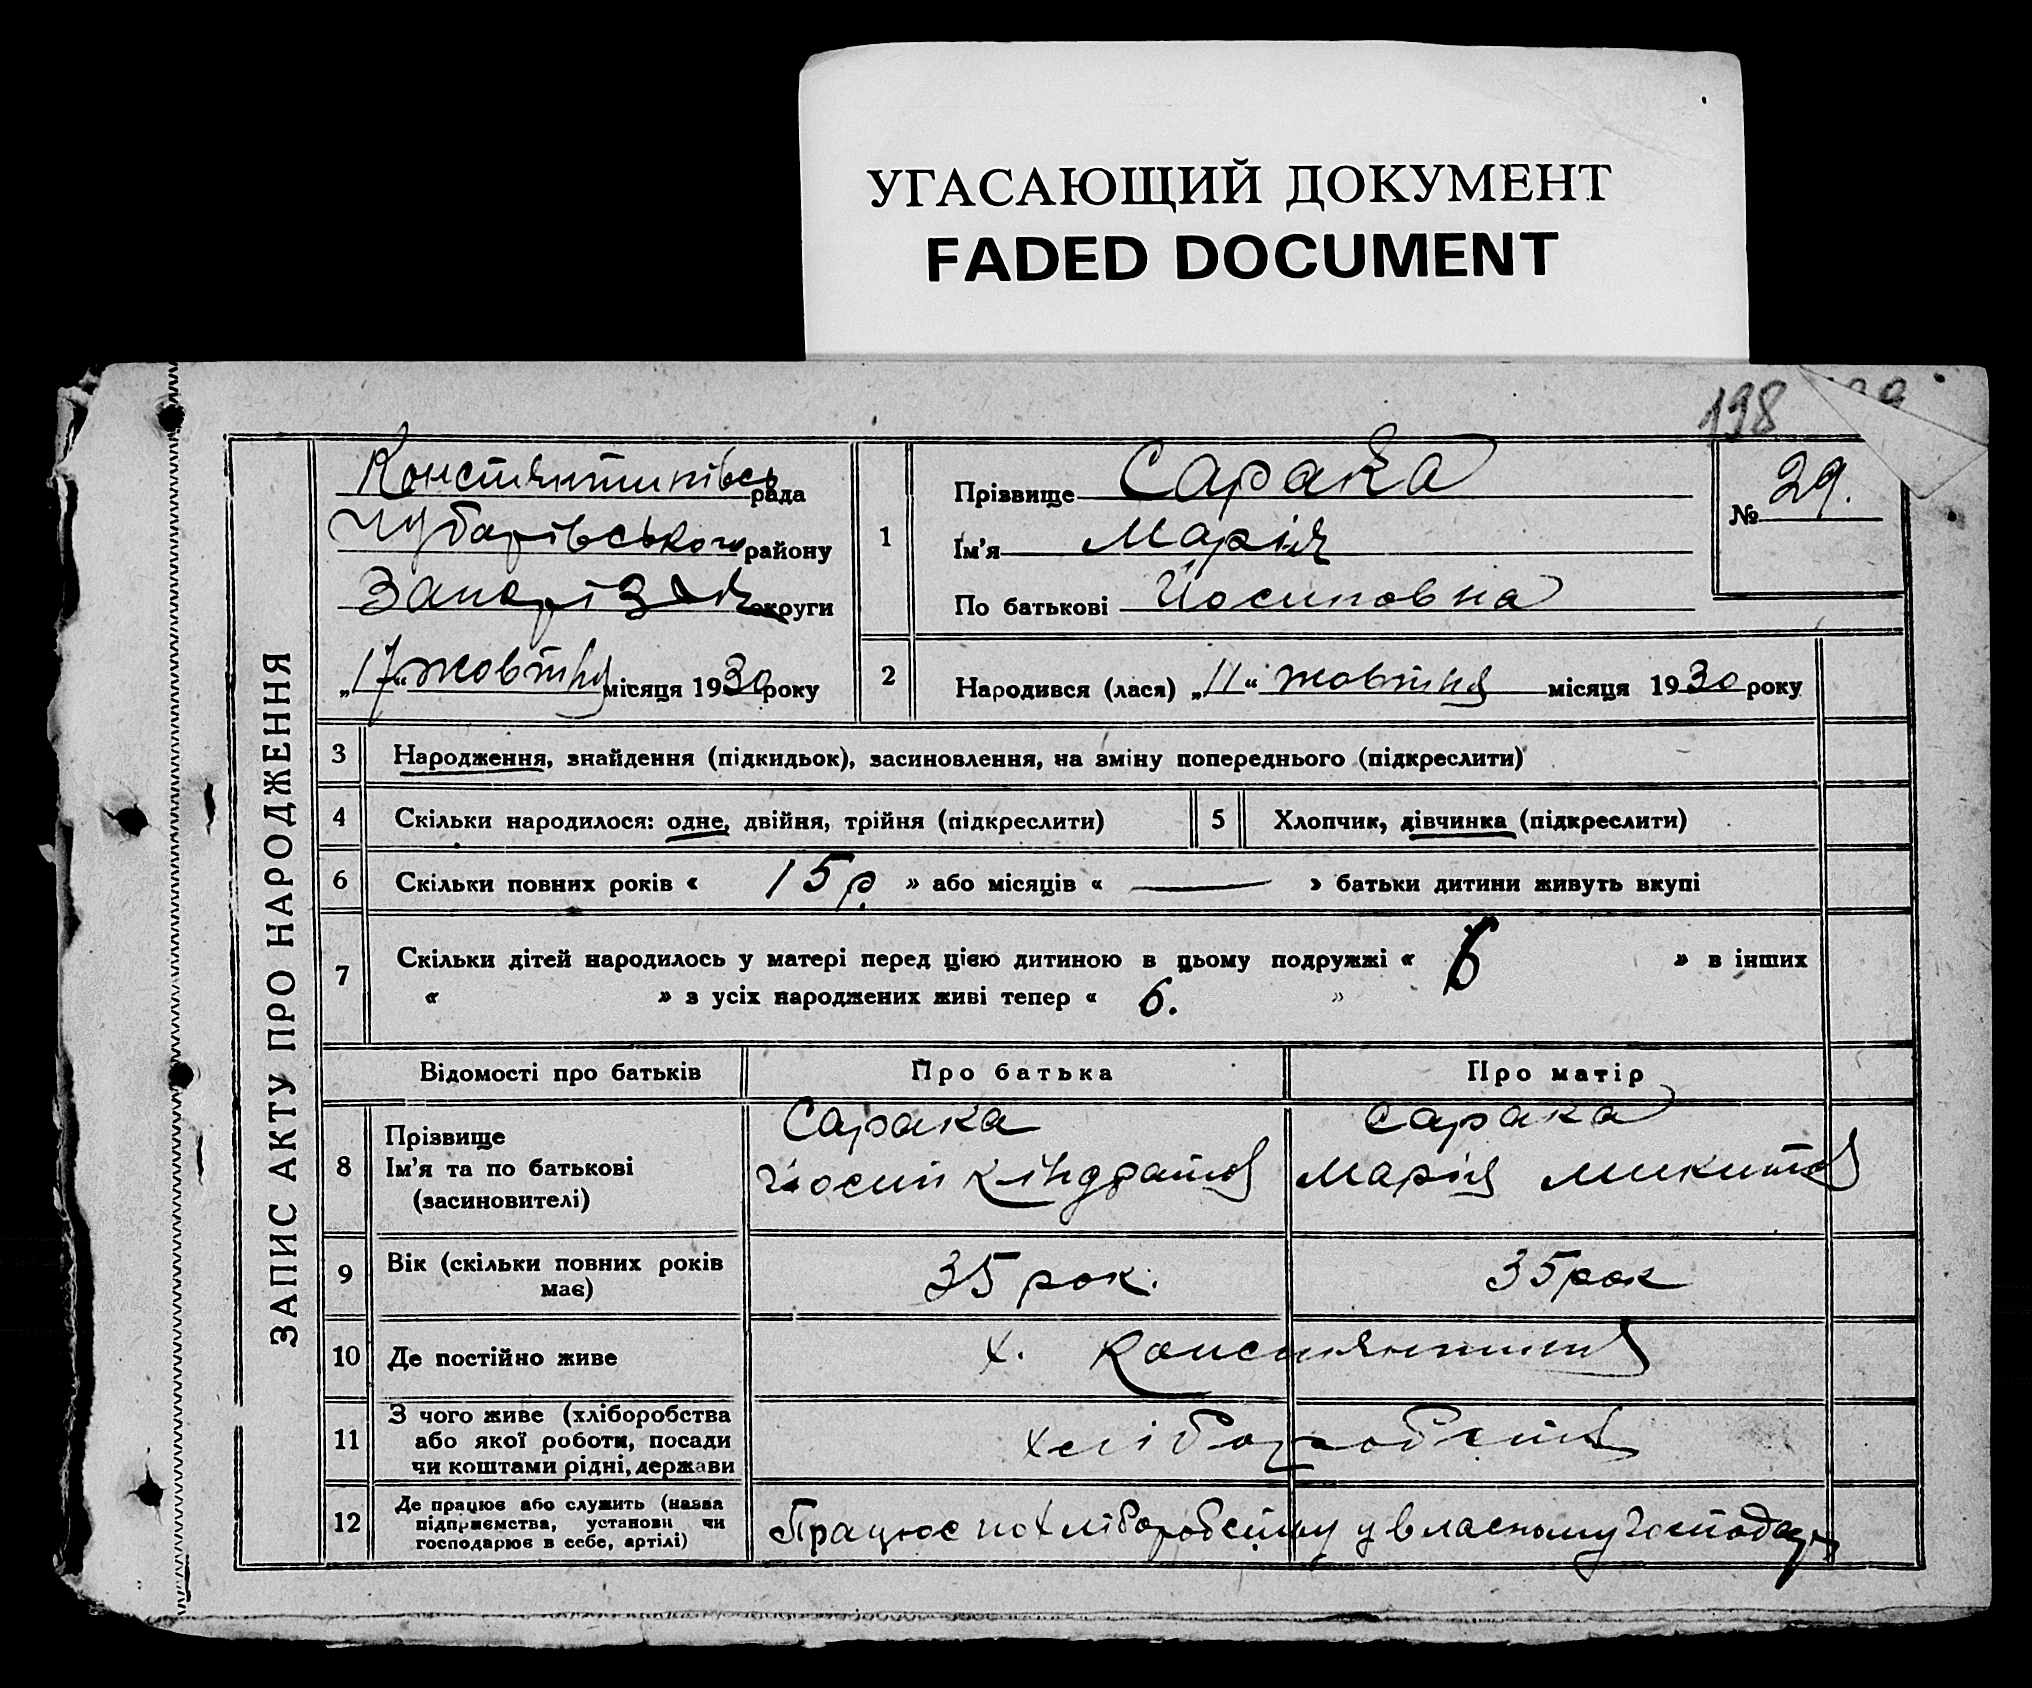 УГАСАЮЩИЙ ДОКУМЕНТ
FADED DOCUMENT
198
ЗАПИС АКТУ ПРО НАРОДЖЕННЯ
Констянтинівсь рада
Чубарівського району
округи
„17“ жовтня місяця 1930 року
1
Прізвище Сарака
Ім'я Марія
По батькові Йосиповна
№ 29.
2
Народився (лася) „11“ жовтня місяця 1930 року
3 Народження, знайдення (підкидьок), засиновлення, на зміну попереднього (підкреслити)
4 Скільки народилося: одне, двійня, трійня (підкреслити)
5 Хлопчик, дівчинка (підкреслити)
6 Скільки повних років « 15 р. » або місяців « — » батьки дитини живуть вкупі
7 Скільки дітей народилось у матері перед цією дитиною в цьому подружжі « 6 » в інших
« » з усіх народжених живі тепер « 6. »
Відомості про батьків
Про батька
Про матір
8 Прізвище
Ім'я та по батькові
(засиновителі)
Сарака
Йосип
Сарака
Марія Микитов
9 Вік (скільки повних років
має)
35 рок.
35 рок
10 Де постійно живе
х. Констянтинів
11 З чого живе (хліборобства
або якої роботи, посади
чи коштами рідні, держави
хліборобства
12 Де працює або служить (назва
підприємства, установи чи
господарює в себе, артілі)
Працює по хліборобству у власному господар